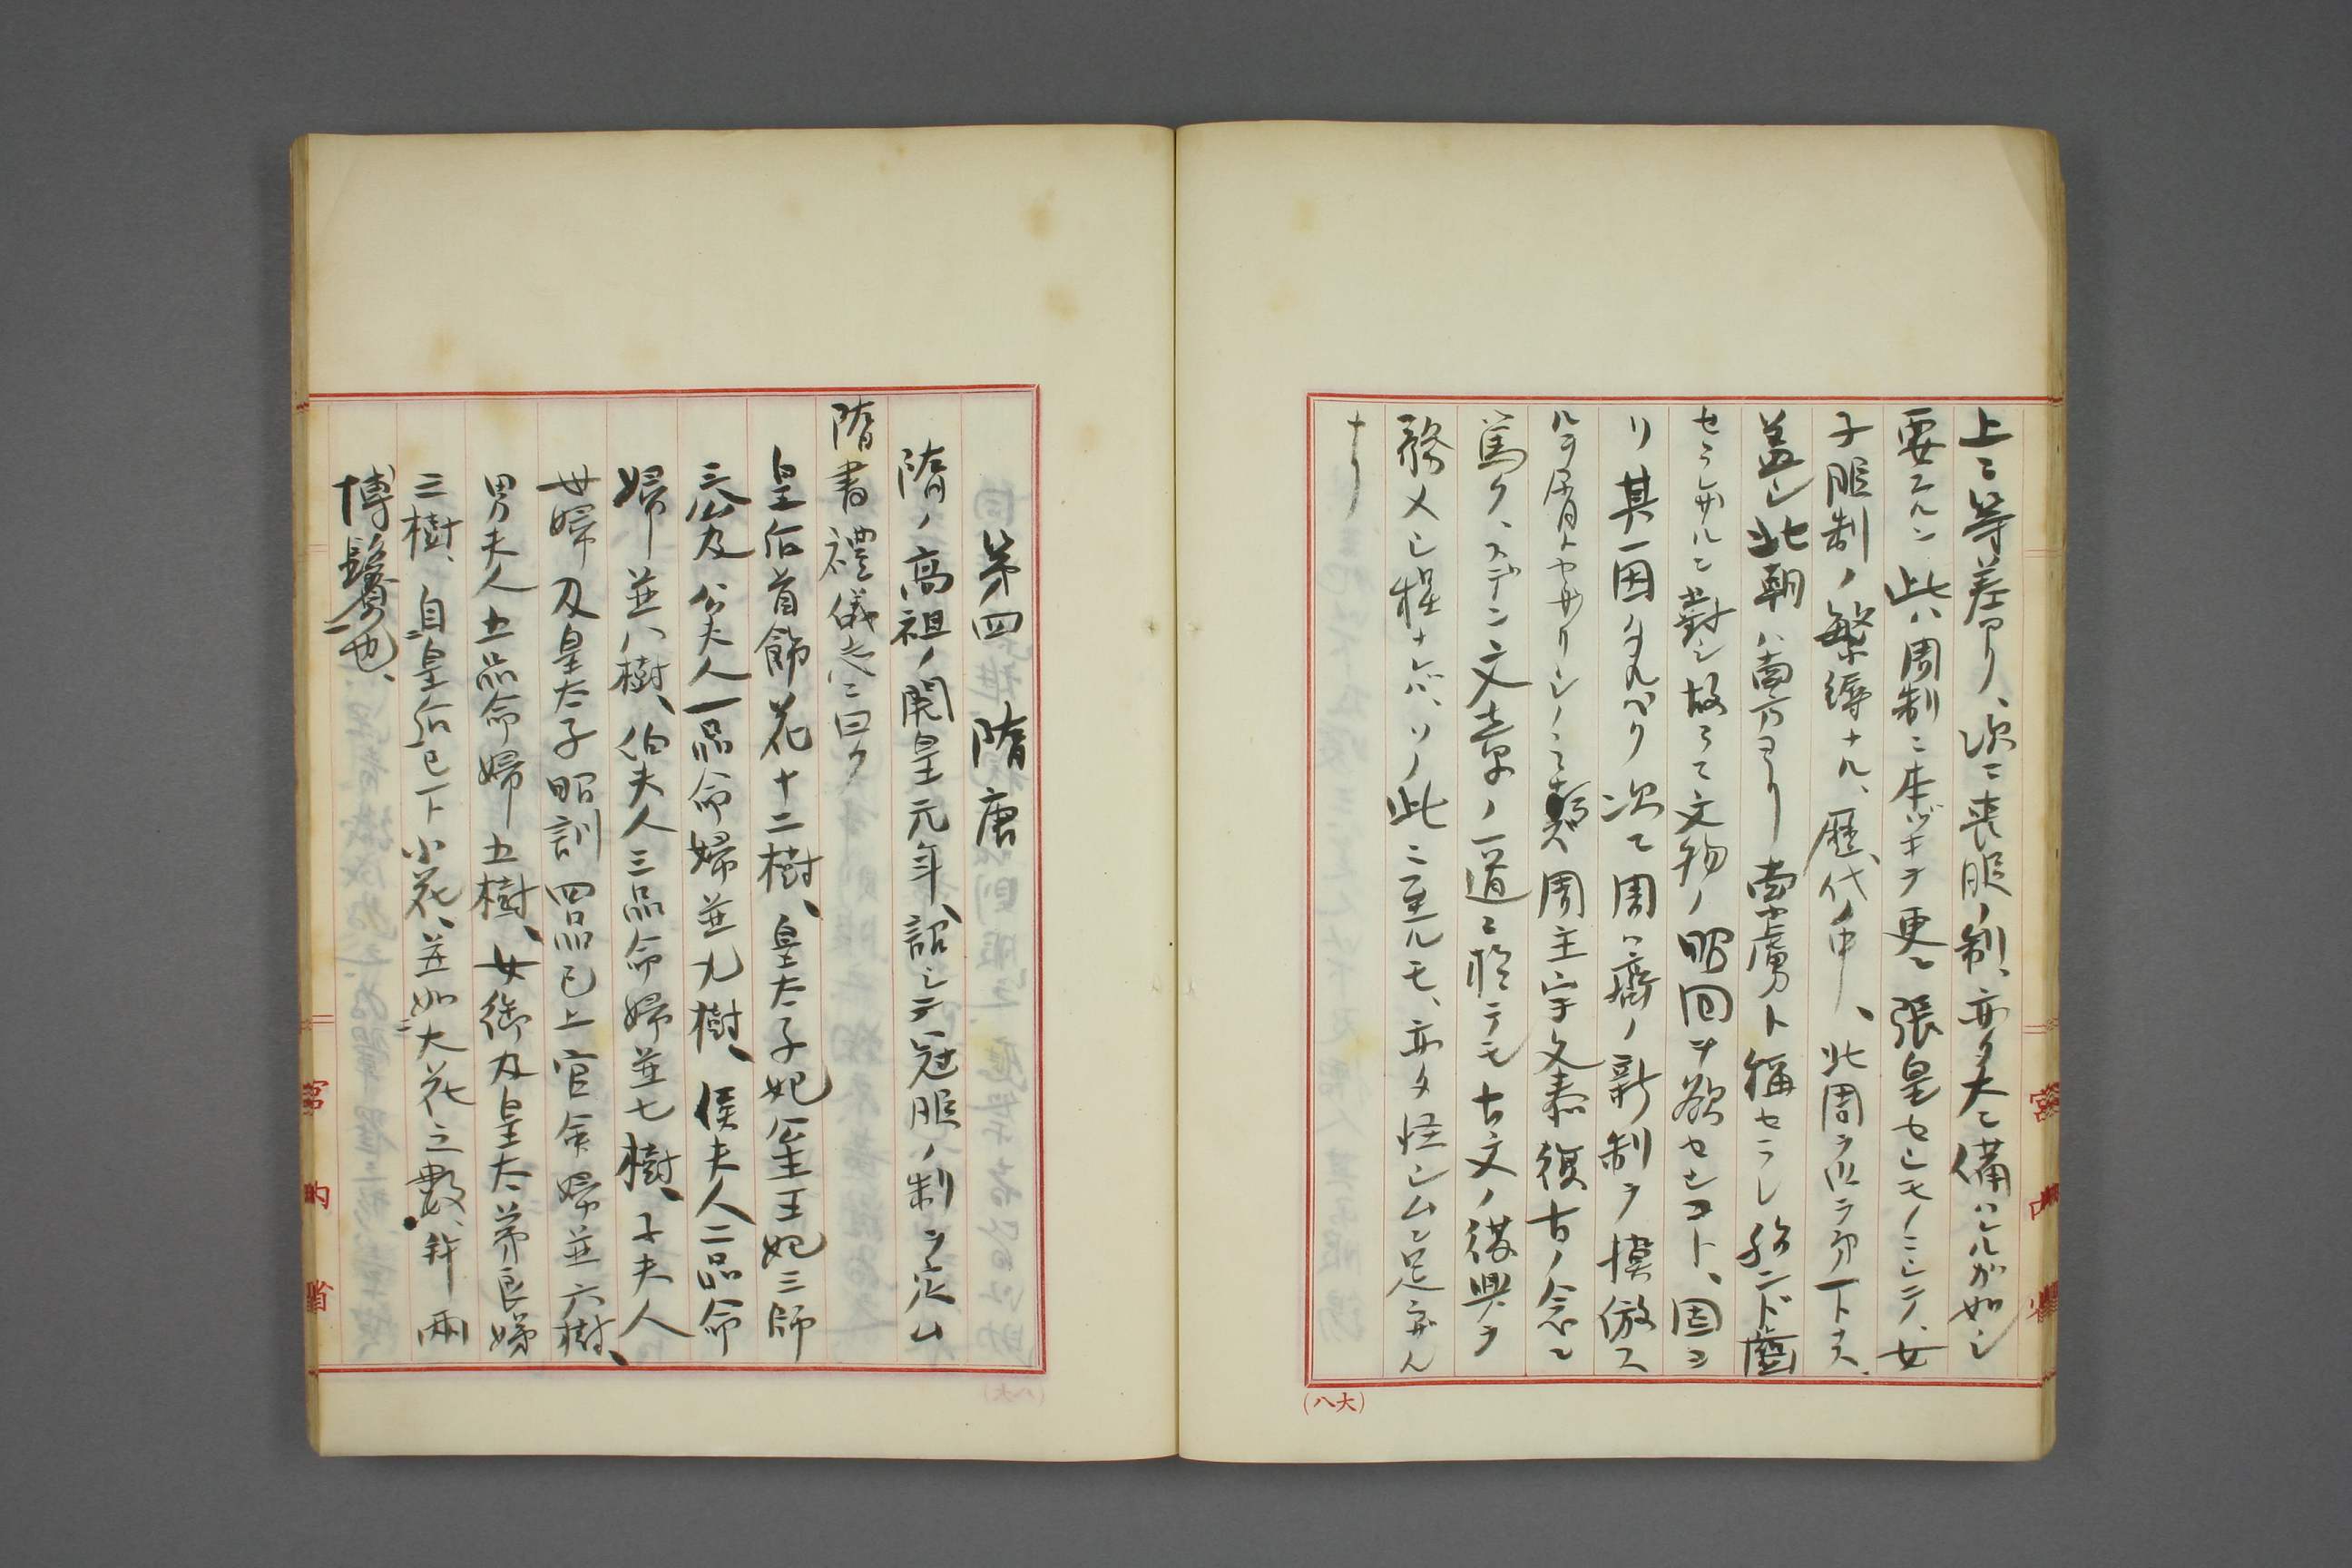 上ニ等差アリ、次ニ喪服ノ制、亦タ大ニ備ハルガ如シ
要スルニ此ハ周制ニ本ヅキテ更ニ張皇セシモノニシテ、女
子服制ノ繁縟ナル、歴代ノ中、北周ヲ以テ第一トス、
蓋シ北朝ハ南方ヨリ索虜ト稱セラレ殆ンド齒
セラレザルニ對シ故ラニ文物ノ昭回ヲ欲セシコト、固ヨ
リ其一因タルベク次ニ周ハ齊ノ新制ヲ摸倣ス
ルヲ屑トセザリシノミナラズ周主宇文泰復古ノ念ニ
篤ク、スデニ文章ノ一道ニ於テモ古文ノ復興ヲ
務メシ程ナレバ、ソノ此ニ至ルモ、亦タ怪シムニ足ラザル
ナリ
(八大)
宮内省
第四 隋唐
隋ノ高祖ノ開皇元年、詔シテ冠服ノ制ヲ定ム
隋書禮儀志ニ曰ク
皇后首飾花十二樹、皇太子妃諸王妃三師
三公及公夫人一品命婦並九樹、侯夫人二品命
婦並八樹、伯夫人三品命婦並七樹、子夫人
世婦及皇太子昭訓四品已上官命婦並六樹、
男夫人五品命婦五樹、女御及皇太弟良娣
三樹、自皇后已下小花、並如大花之數、并兩
博鬢也、
宮内省